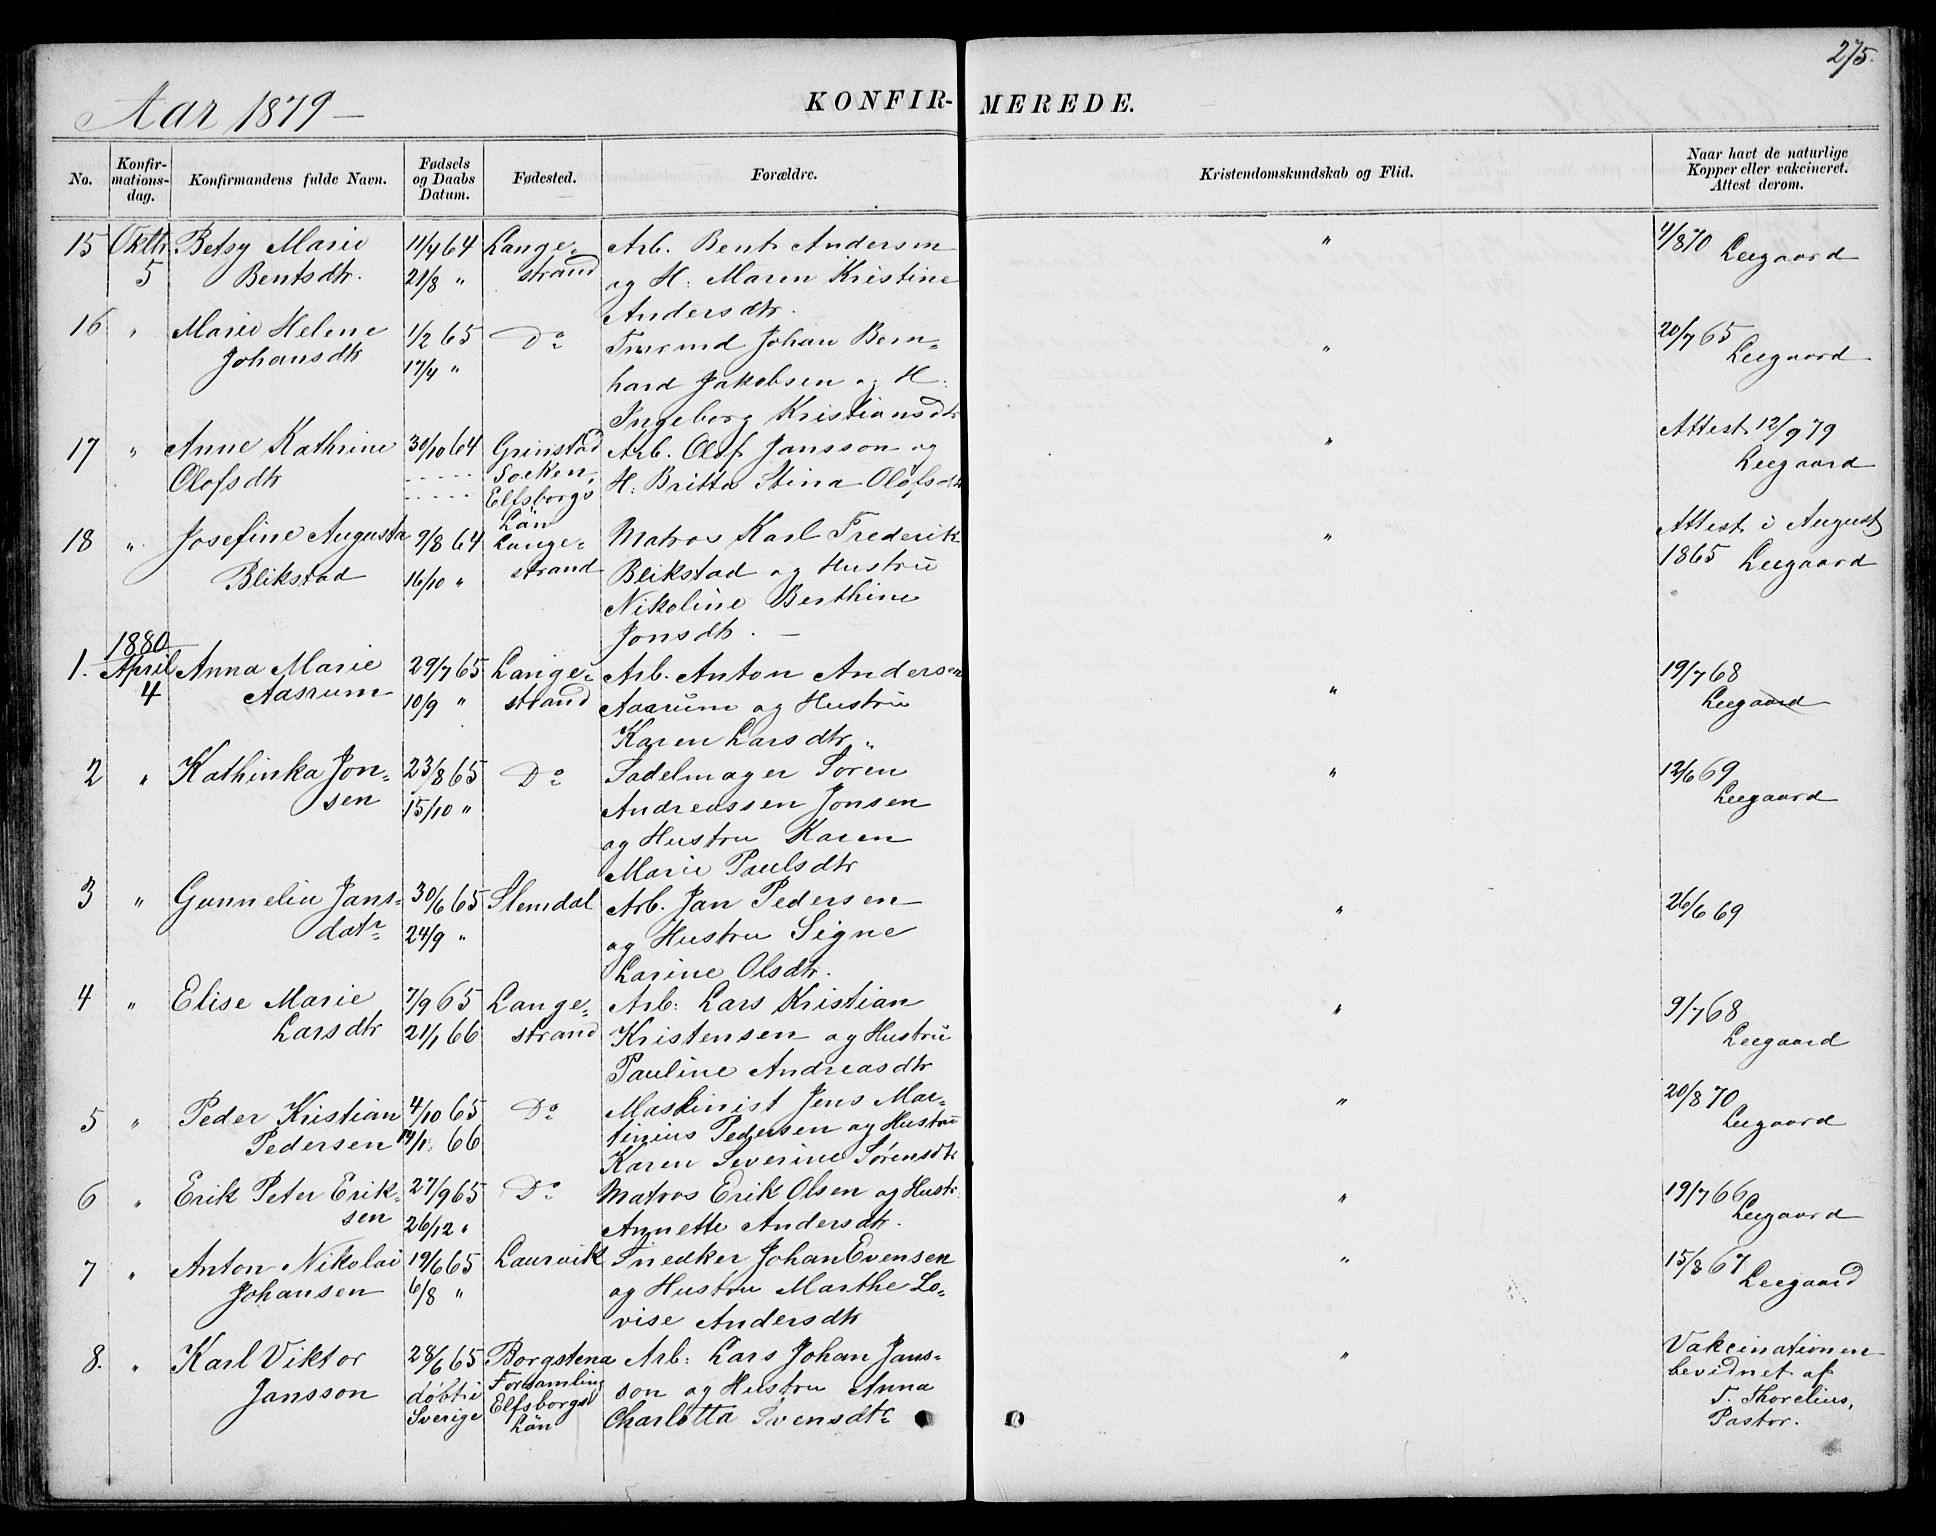 275.
Aar 1879 —
KONFIR- MEREDE.
No. Konfir-mations-dag. Konfirmandens fulde Navn. Fødsels og Daabs Datum. Fødested. Forældre. Kristendomskundskab og Flid. Naar havt de naturlige Kopper eller vakcineret. Attest derom.
15 Oktbr. Betsy Marie 11/4 64 Lange- Arb. Bent Andersen " 4/8 70 Leegaard
5 Bentsdtr. 21/8 " strand og H. Maren Kristine
Andersdtr.
16 " Marie Helene 1/2 65 Do Tmrmd Johan Bern- " 20/7 65
Johansdtr 17/4 " hard Jakobsen og H. Leegaard
Ingeborg Kristiansdtr
17 " Anne Kathrine 30/10 64 Grinstad Arb. Olof Jansson og " Attest 12/9 79
Olofsdtr Socken, H. Britta Stina Olofsdtr Leegaard
Elfsborgs
Län
18 " Josefine Augusta 9/8 64 Lange- Matros Karl Frederik " Attest i August
Blikstad 16/10 " strand Blikstad og Hustru 1865 Leegaard
Nikoline Berthine
Jonsdtr. —
1880
1. April Anna Marie 29/7 65 Lange- Arb. Anton Andersen 19/7 68
4 Aasrum 10/9 " strand Aasrum og Hustru " Leegaard
Karen Larsdtr "
2 " Kathinka Jon- 23/8 65 Do Sadelmager Søren " 12/6 69
sen 15/10 " Andreassen Jonsen Leegaard
og Hustru Karen
Marie Paulsdtr
3 " Gunnelia Jans- 30/6 65 Slemdal Arb. Jan Pedersen " 26/6 69
datr 24/9 " og Hustru Signe
Larine Olsdtr.
4 " Elise Marie 7/9 65 Lange- Arb: Lars Kristian " 9/7 68
Larsdtr 21/1 66 strand Kristensen og Hustru Leegaard
Pauline Andreasdtr
5 " Peder Kristian 4/10 65 Do Maskinist Jens Mar- " 20/8 70
Pedersen 14/1 66 tinius Pedersen og Hustru Leegaard
Karen Severine Sørensdtr
6 " Erik Peter Erik- 27/9 65 Do Matros Erik Olsen og Hustr. " 19/7 66
sen 26/12 " Annette Andersdtr. Leegaard
7 " Anton Nikolai 19/6 65 Laurvik Snedker Johan Evensen " 15/8 67
Johansen 6/8 " og Hustru Marthe Lo- Leegaard
vise Andersdtr
8. " Karl Viktor 28/6 65 Borgstena Arb: Lars Johan Jans- " Vakcinationen
Jansson døbt i Forsamling son og Hustru Anna bevidnet af
Sverige Elfsborgs Charlotta Svensdtr T. Thorelius,
Län Pastor.